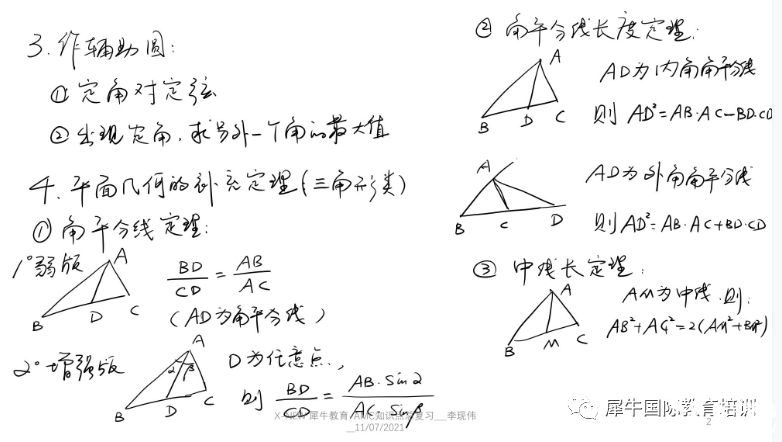 3. 作辅助圆:
① 定角对定弦
② 出现定角, 求另外一个角的最大值
4. 平面几何的补充定理(三角形类)
① 角平分线定理:
1° 弱版
A
B
D
C
BD/CD = AB/AC
(AD为角平分线)
2° 增强版
A
α β
B
D
C
D为任意点,
则 BD/CD = AB·Sinα/AC·Sinβ
② 角平分线长度定理:
A
B
D
C
AD为内角角平分线
则 AD²=AB·AC-BD·CD
A
B
C
D
AD为外角角平分线
则AD²=AB·AC+BD·CD
③ 中线长定理:
A
B
M
C
AM为中线.则:
AB²+AC²=2(AM²+BM²)
犀牛教育
知识点
复习__李现伟
__11/07/2021
犀牛国际教育培训
2